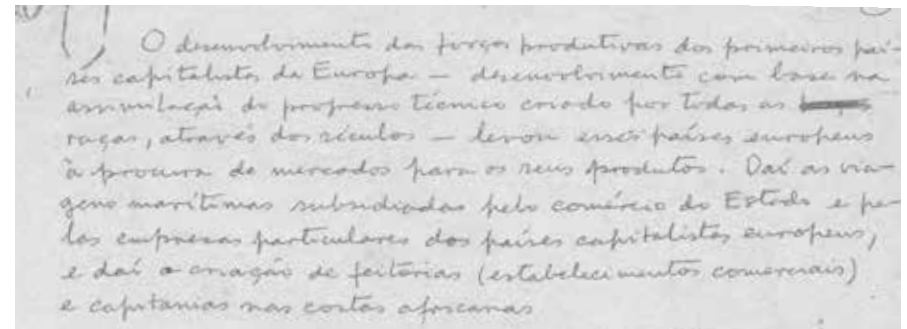 O desenvolvimento das forças produtivas dos primeiros paí-
ses capitalistas da Europa — desenvolvimento com base na
assimilação do progresso técnico criado por todas as
raças, através dos séculos — levou esses países europeus
à procura de mercados para os seus produtos. Daí as via-
gens marítimas subsidiadas pelo comércio do Estado e pe-
las empresas particulares dos países capitalistas europeus,
e daí a criação de feitorias (estabelecimentos comerciais)
e capitanias nas costas africanas